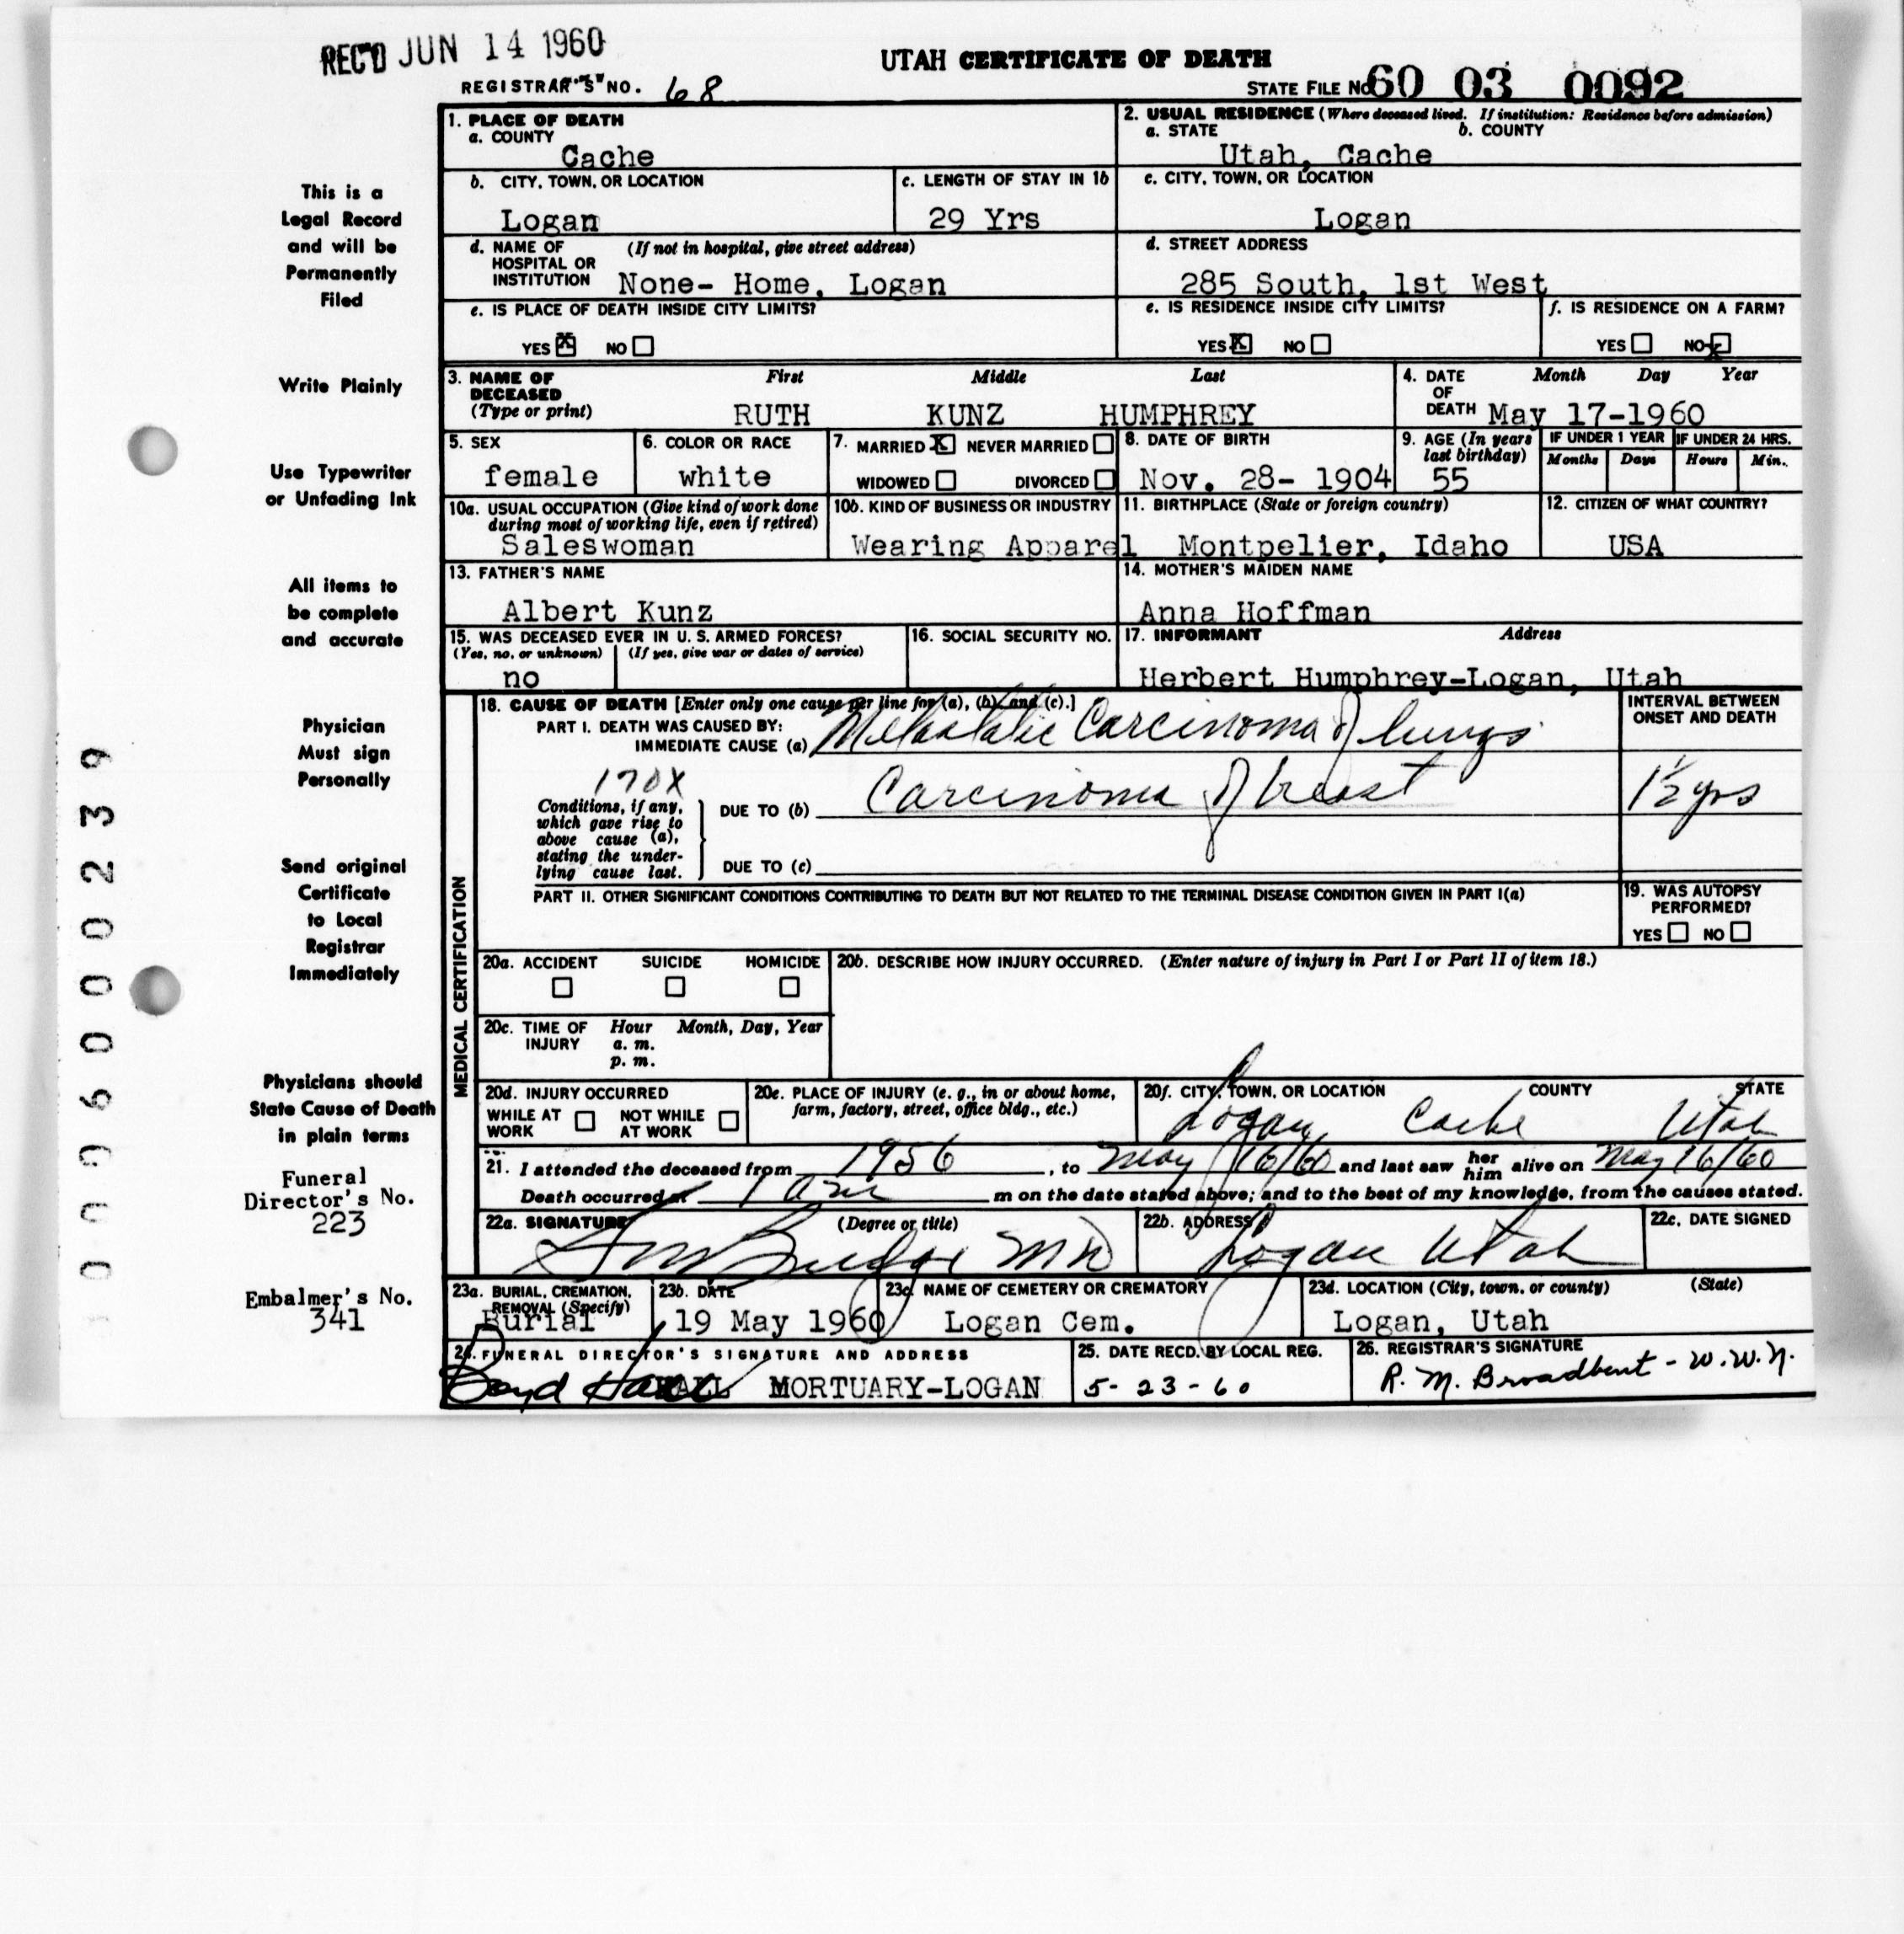 REC'D JUN 14 1960
UTAH CERTIFICATE OF DEATH
REGISTRAR'S NO. 68
STATE FILE NO. 60 03 0092
1. PLACE OF DEATH
a. COUNTY
Cache
2. USUAL RESIDENCE (Where deceased lived. If institution: Residence before admission)
a. STATE b. COUNTY
Utah, Cache
b. CITY, TOWN, OR LOCATION
Logan
c. LENGTH OF STAY IN 1b
29 Yrs
c. CITY, TOWN, OR LOCATION
Logan
d. NAME OF (If not in hospital, give street address)
HOSPITAL OR
INSTITUTION None- Home, Logan
d. STREET ADDRESS
285 South, 1st West
e. IS PLACE OF DEATH INSIDE CITY LIMITS?
YES X NO
e. IS RESIDENCE INSIDE CITY LIMITS?
YES X NO
f. IS RESIDENCE ON A FARM?
YES NO X
3. NAME OF DECEASED (Type or print)
First Middle Last
RUTH KUNZ HUMPHREY
4. DATE OF DEATH
Month Day Year
May 17-1960
5. SEX
female
6. COLOR OR RACE
white
7. MARRIED X NEVER MARRIED
WIDOWED DIVORCED
8. DATE OF BIRTH
Nov. 28- 1904
9. AGE (In years last birthday)
55
IF UNDER 1 YEAR
Months Days
IF UNDER 24 HRS.
Hours Min.
10a. USUAL OCCUPATION (Give kind of work done
during most of working life, even if retired)
Saleswoman
10b. KIND OF BUSINESS OR INDUSTRY
Wearing Apparel
11. BIRTHPLACE (State or foreign country)
Montpelier, Idaho
12. CITIZEN OF WHAT COUNTRY?
USA
13. FATHER'S NAME
Albert Kunz
14. MOTHER'S MAIDEN NAME
Anna Hoffman
15. WAS DECEASED EVER IN U. S. ARMED FORCES?
(Yes, no, or unknown) (If yes, give war or dates of service)
no
16. SOCIAL SECURITY NO.
17. INFORMANT Address
Herbert Humphrey-Logan, Utah
MEDICAL CERTIFICATION
18. CAUSE OF DEATH [Enter only one cause per line for (a), (b), and (c).]
PART I. DEATH WAS CAUSED BY:
IMMEDIATE CAUSE (a) Metastatic Carcinoma of lungs
INTERVAL BETWEEN
ONSET AND DEATH
170X
Conditions, if any,
which gave rise to
above cause (a),
stating the under-
lying cause last.
DUE TO (b) Carcinoma of breast
1½ yrs
DUE TO (c)
PART II. OTHER SIGNIFICANT CONDITIONS CONTRIBUTING TO DEATH BUT NOT RELATED TO THE TERMINAL DISEASE CONDITION GIVEN IN PART I(a)
19. WAS AUTOPSY
PERFORMED?
YES NO
20a. ACCIDENT SUICIDE HOMICIDE
20b. DESCRIBE HOW INJURY OCCURRED. (Enter nature of injury in Part I or Part II of item 18.)
20c. TIME OF INJURY
Hour Month, Day, Year
a. m.
p. m.
20d. INJURY OCCURRED
WHILE AT WORK NOT WHILE AT WORK
20e. PLACE OF INJURY (e. g., in or about home,
farm, factory, street, office bldg., etc.)
20f. CITY, TOWN, OR LOCATION COUNTY STATE
Logan Cache Utah
21. I attended the deceased from 1956, to May 16/60 and last saw her him alive on May 16/60
Death occurred at 1 am m on the date stated above; and to the best of my knowledge, from the causes stated.
22a. SIGNATURE (Degree or title)
Budge MD
22b. ADDRESS
Logan Utah
22c. DATE SIGNED
23a. BURIAL, CREMATION,
REMOVAL (Specify)
Burial
23b. DATE
19 May 1960
23c. NAME OF CEMETERY OR CREMATORY
Logan Cem.
23d. LOCATION (City, town, or county) (State)
Logan, Utah
24. FUNERAL DIRECTOR'S SIGNATURE AND ADDRESS
Boyd Hall HALL MORTUARY-LOGAN
25. DATE RECD. BY LOCAL REG.
5-23-60
26. REGISTRAR'S SIGNATURE
R. M. Broadbent - W.W.N.
This is a
Legal Record
and will be
Permanently
Filed
Write Plainly
Use Typewriter
or Unfading Ink
All items to
be complete
and accurate
Physician
Must sign
Personally
Send original
Certificate
to Local
Registrar
Immediately
Physicians should
State Cause of Death
in plain terms
Funeral
Director's No.
223
Embalmer's No.
341